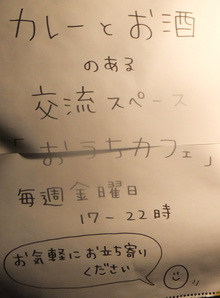 カレーとお酒
のある
交流スペース
「おうちカフェ」
毎週金曜日
17-22時
お気軽にお立ち寄り
ください